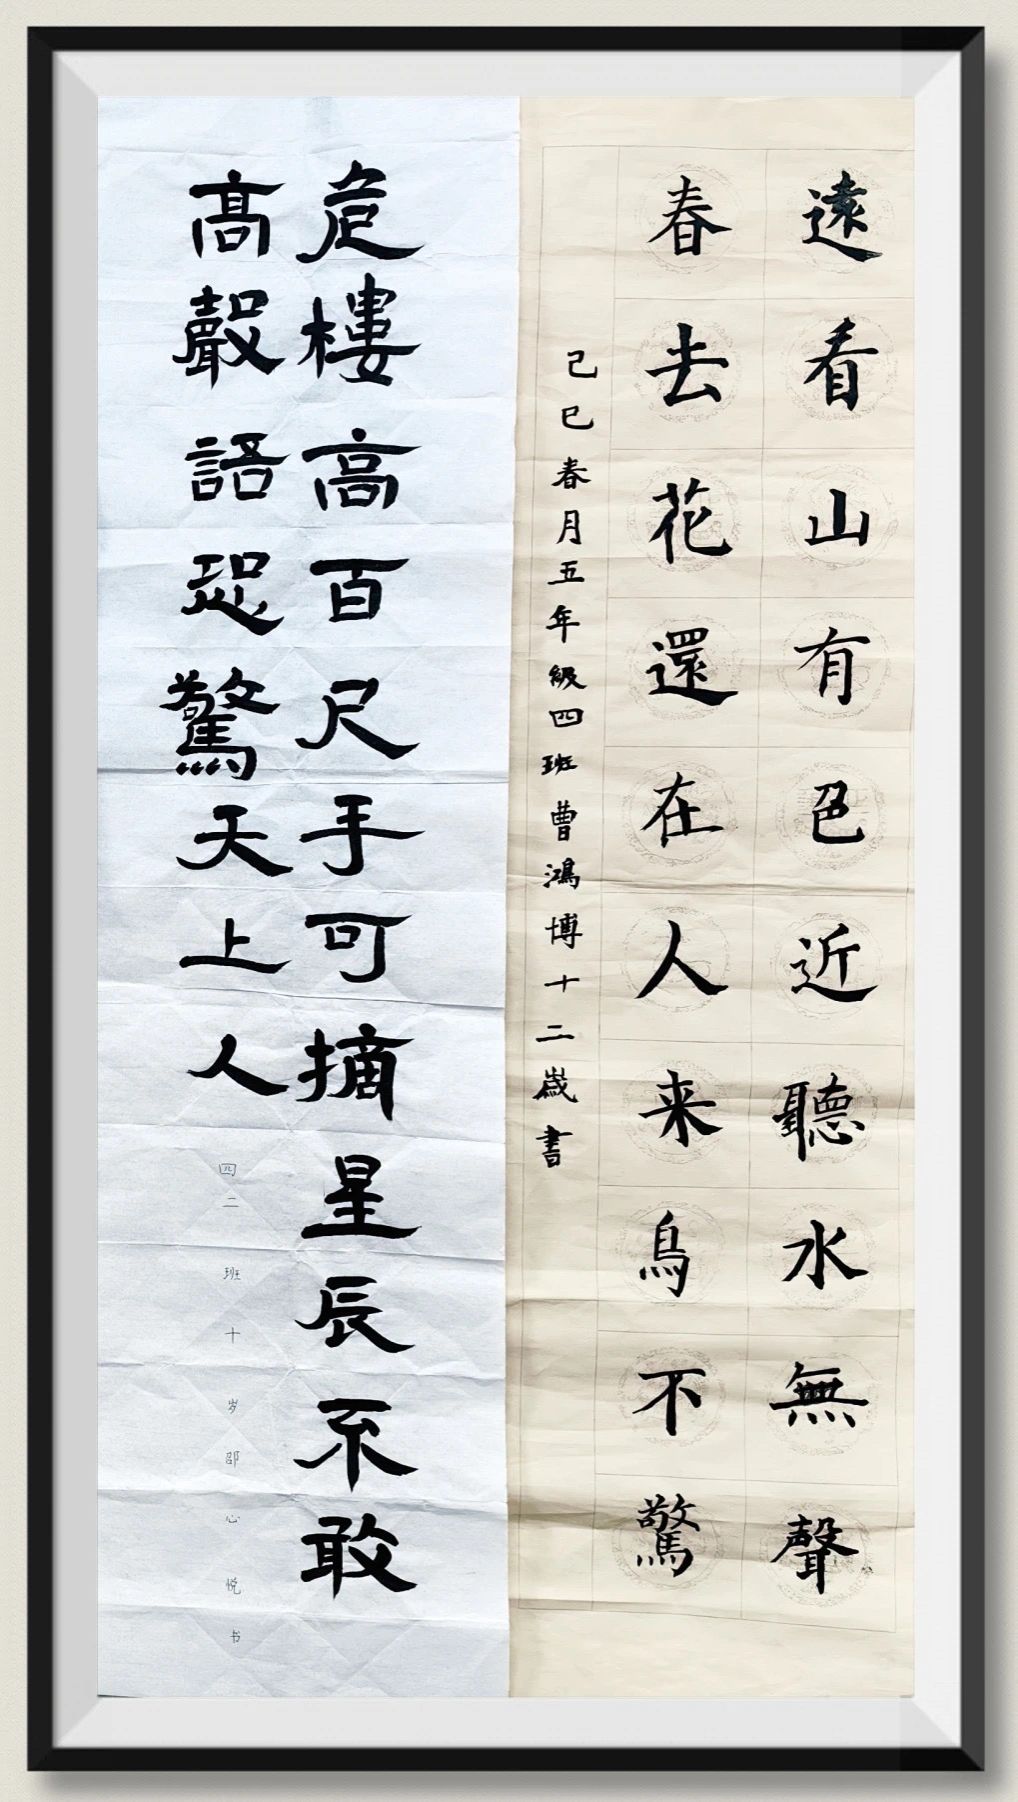 遠看山有色近聽水無聲
春去花還在人来鳥不驚
己巳春月五年級四班曹鴻博十二歲書
危樓高百尺手可摘星辰不敢
高聲語恐驚天上人
四二班十岁邵心悦书